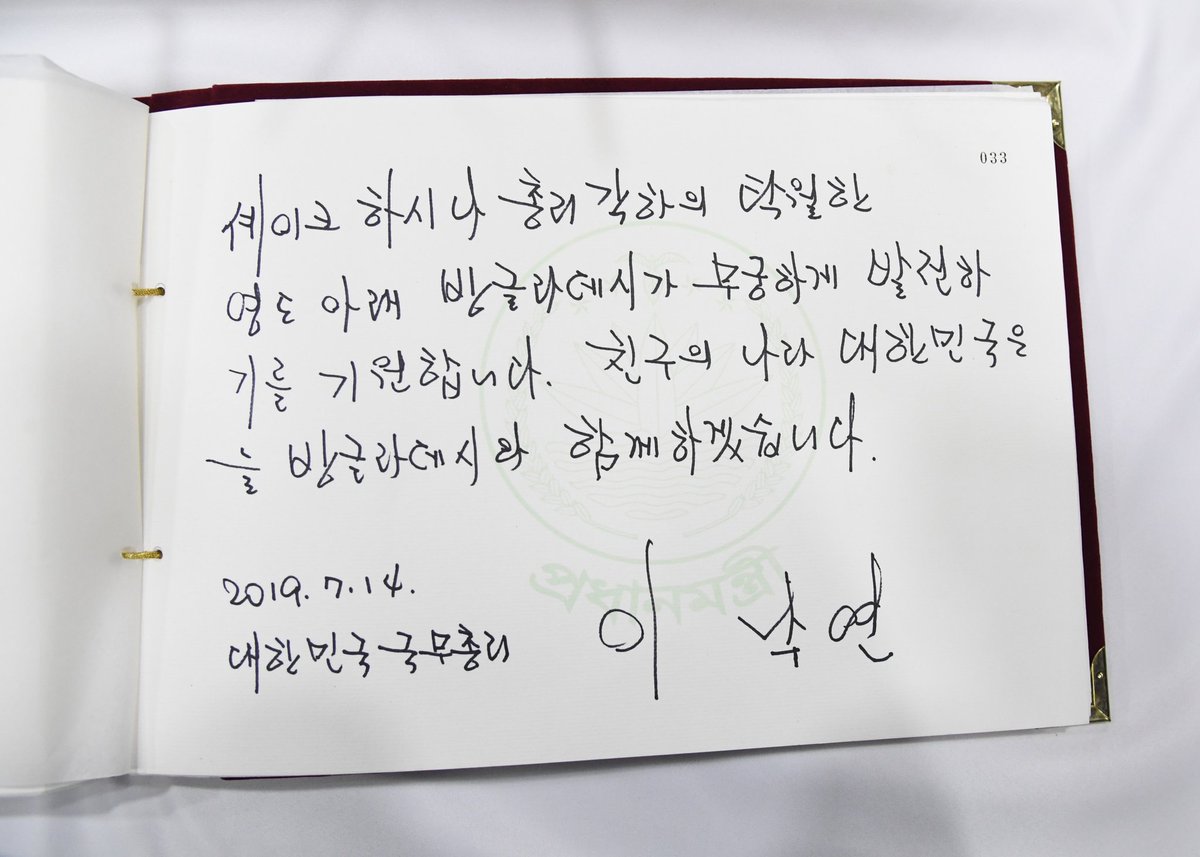 033
셰이크 하시나 총리 각하의 탁월한
영도 아래 방글라데시가 무궁하게 발전하
기를 기원합니다. 친구의 나라 대한민국은
늘 방글라데시와 함께하겠습니다.
প্রধানমন্ত্রী
2019. 7. 14.
대한민국 국무총리 이낙연